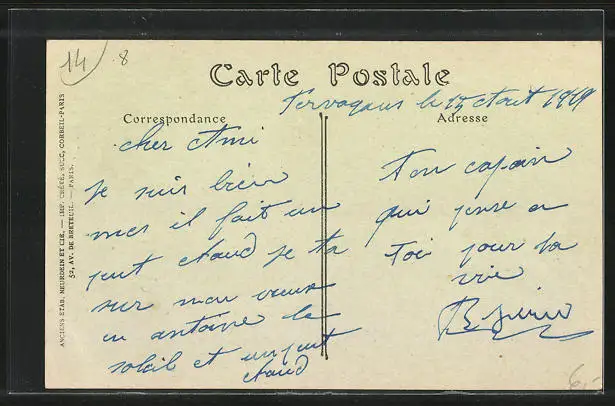 14
8
Carte Postale
le 15 Aout 1919
Correspondance
Adresse
cher Ami
Je suis bien
mes il fait un
put chaud je ta
sur mon vieux
en antoine le
soleil et un put
chaud
Ton copain
qui pense a
toi pour la
vie
ANCIENS ETAB. NEURDEIN ET CIE. — IMP. CRÉTÉ, SUCC, CORBEIL-PARIS
52, AV. DE BRETEUIL. — PARIS.
6,-